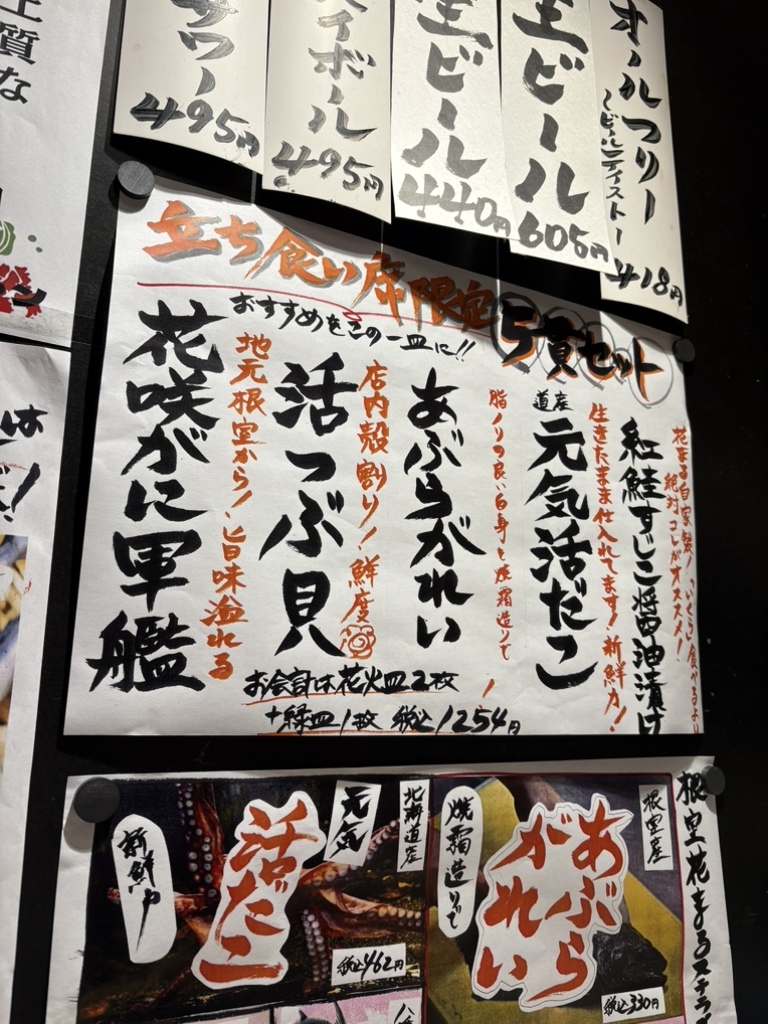 上質な
サワー
495円
ハイボール
495円
生ビール
440円
生ビール
605円
オールフリー
〜ビールテイスト〜
418円
立ち食い席限定
5貫セット
おすすめをこの一皿に!!
花まる自家製!「いくら」食べるより
絶対コレがオススメ!
紅鮭すじこ醤油漬け
生きたまま仕入れてます!新鮮力!
道産
元気活だこ
脂ノリの良い白身を焼霜造りで!
あぶらがれい
店内殻割り!鮮度
活つぶ貝
地元根室から!旨味溢れる
花咲がに軍艦
お会計は花火皿2枚
+緑皿1枚 税込1254円
は
!
根室花まるステラプ
根室産
あぶら
がれい
焼霜造りで
税込330円
北海道産
元気
活だこ
新鮮
税込462円